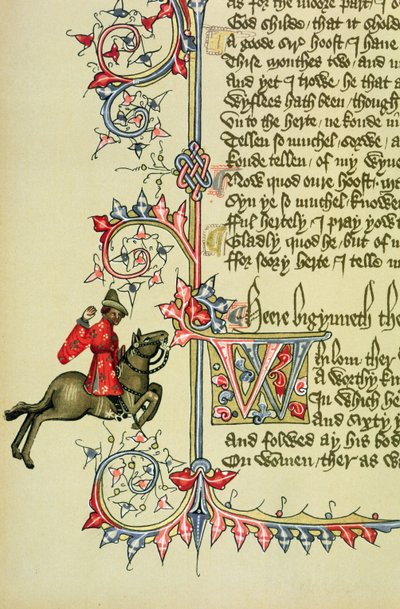 As for the moore part / I
God shilde / that it shold
A goode sire hoost / I haue
Thise monthes two / and m
And yet I trowe / he that a
Wyflees hath been / thoug
Vn to the herte / ne koude in
Tellen so muchel / sorwe / a
Koude tellen / of my wyue
Now quod oure hoost /
Syn ye so muchel / knowe
fful hertely / I pray yow
Gladly quod he / but of
ffor soory herte / I telle m
Heere bigynneth the
Whilom ther
A worthy kn
In which he
And sixty y
And folwed ay his bod
On wommen / ther as w